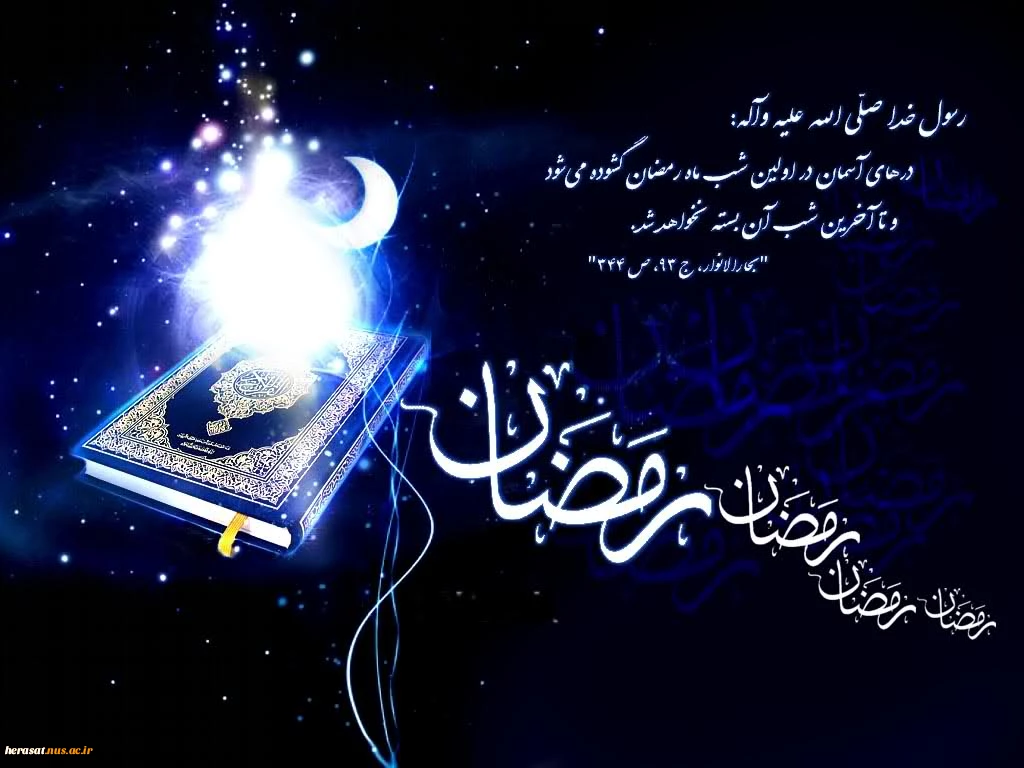 رسول خدا صلّی الله علیه وآله:
درهای آسمان در اولین شب ماه رمضان گشوده می‌شود
و تا آخرین شب آن بسته نخواهد شد.
"بحارالانوار، ج ۹۳، ص ۳۴۴"
رمضان
رمضان
رمضان
رمضان
herasat.nus.ac.ir